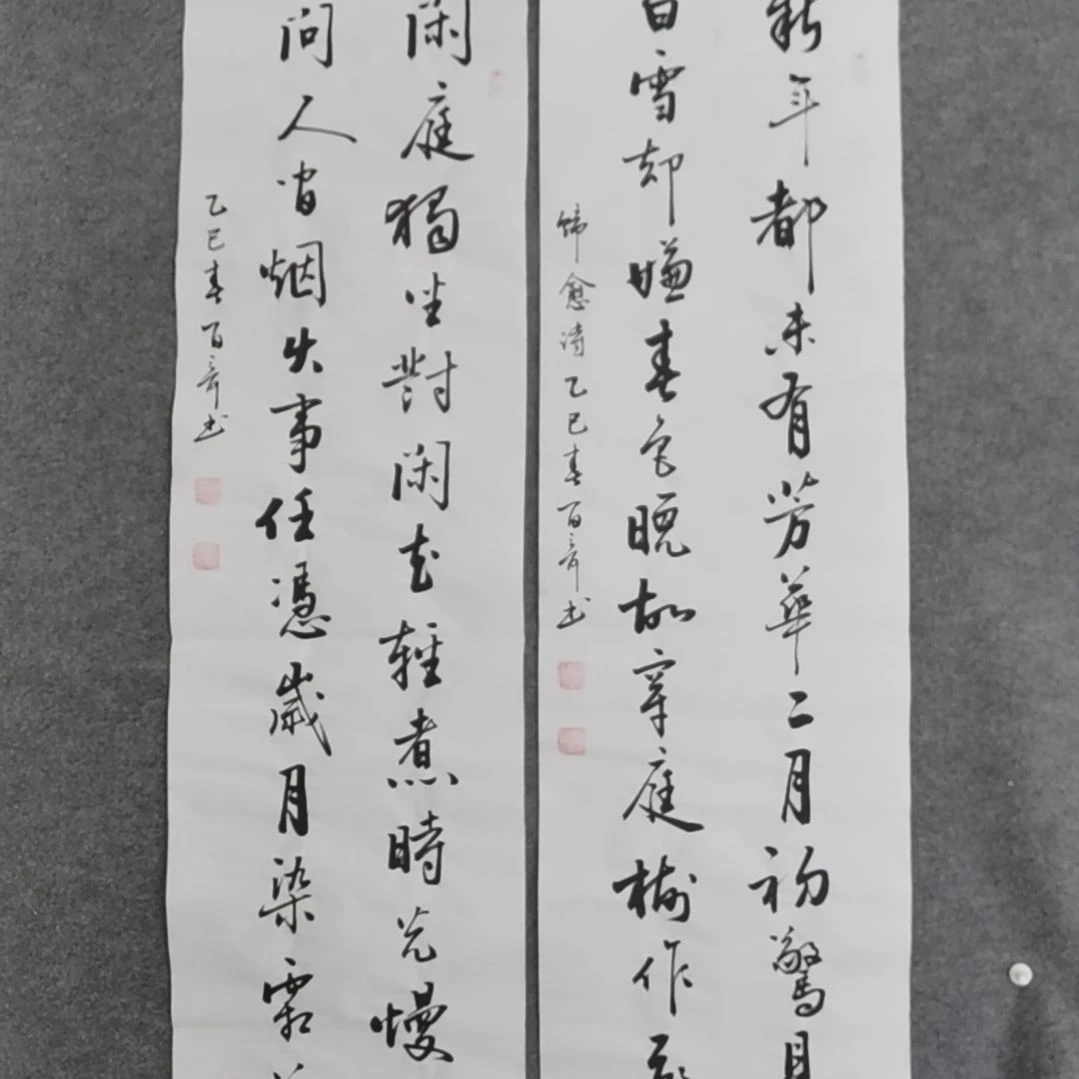 新年都未有芳華二月初驚見
白雪却嫌春色晚故穿庭樹作飛
韓愈詩乙巳春百书
閑庭獨坐對閑花輕煮時光慢
問人間烟火事任憑歲月染霜
乙巳春百书